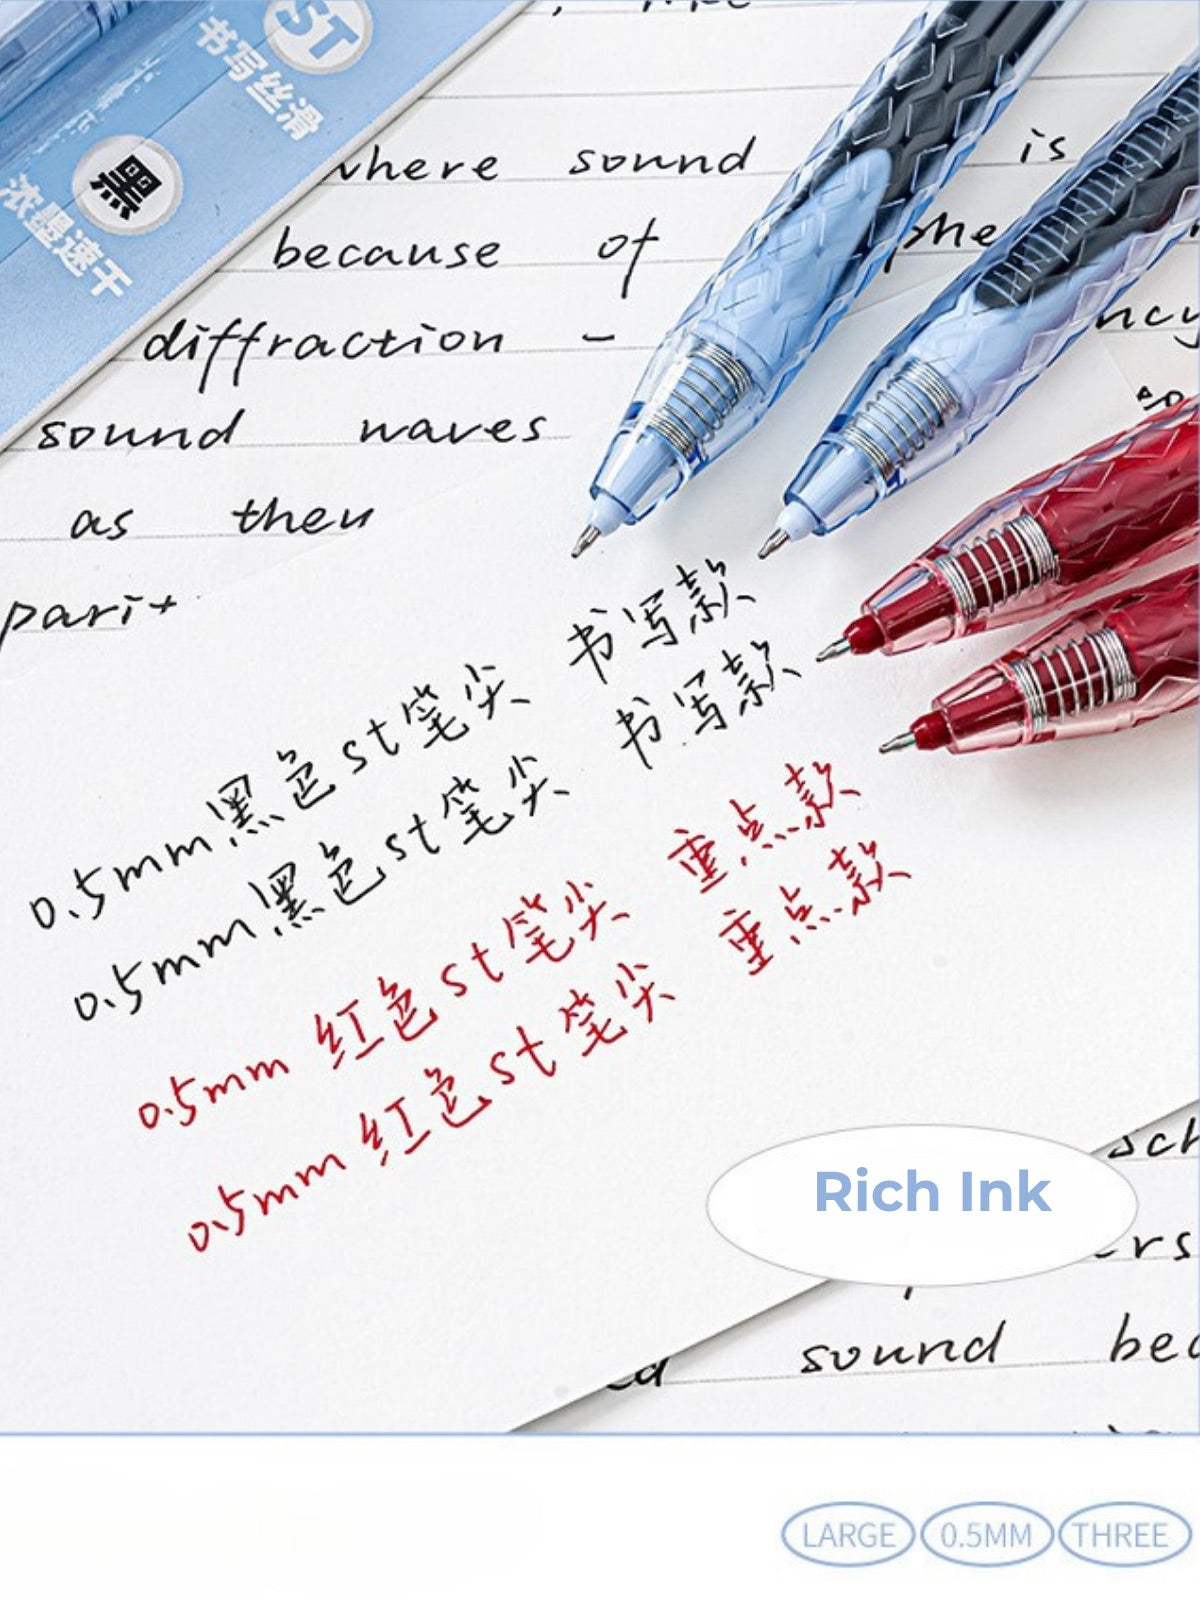 ST
书写丝滑
黑
浓墨速干
where sound is
because of the
diffraction -
sound waves
as then
0.5mm黑色st笔尖 书写款
0.5mm黑色st笔尖 书写款
0.5mm 红色st笔尖 重点款
0.5mm 红色st笔尖 重点款
Rich Ink
sound
LARGE 0.5MM THREE